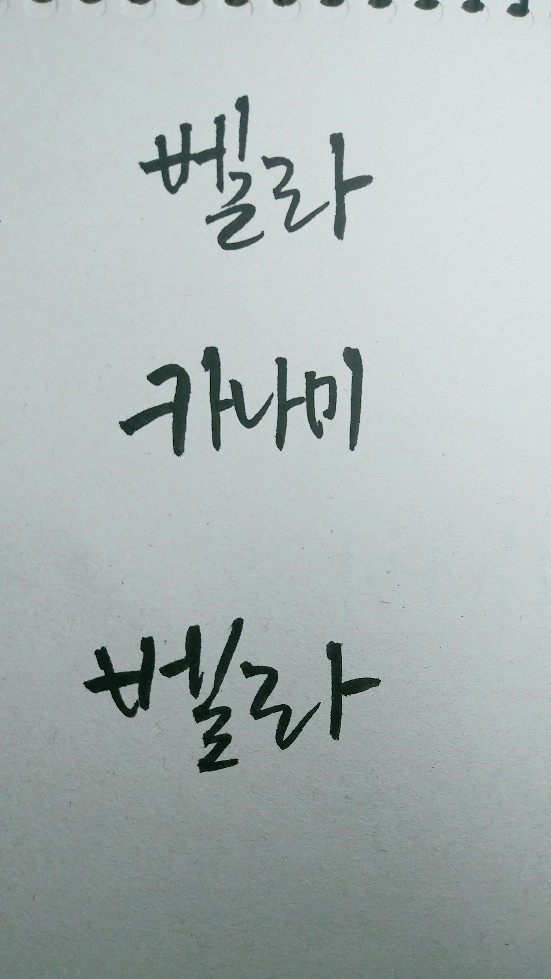 벨라
카나미
벨라